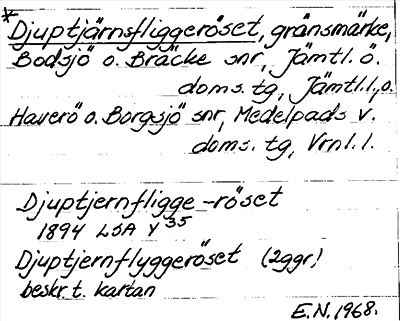 *
Djuptjärnsfliggeröset, gränsmärke,
Bodsjö o. Bräcke snr, Jämtl. ö.
doms. tg, Jämtl. l., o.
Haverö o. Borgsjö snr, Medelpads v.
doms. tg, Vrnl. l.
Djuptjernfligge-röset
1894 LSA Y 35
Djuptjernflyggeröset (2ggr)
beskr. t. kartan
E.N. 1968.